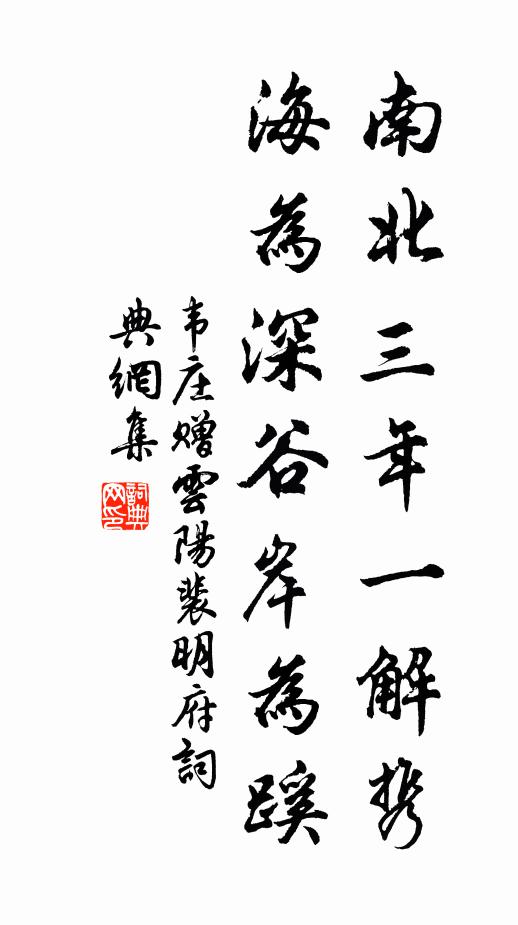 南北三年一解携
海為深谷岸為蹊
韦庄赠雲陽裴明府詞
典網集
詞典网印